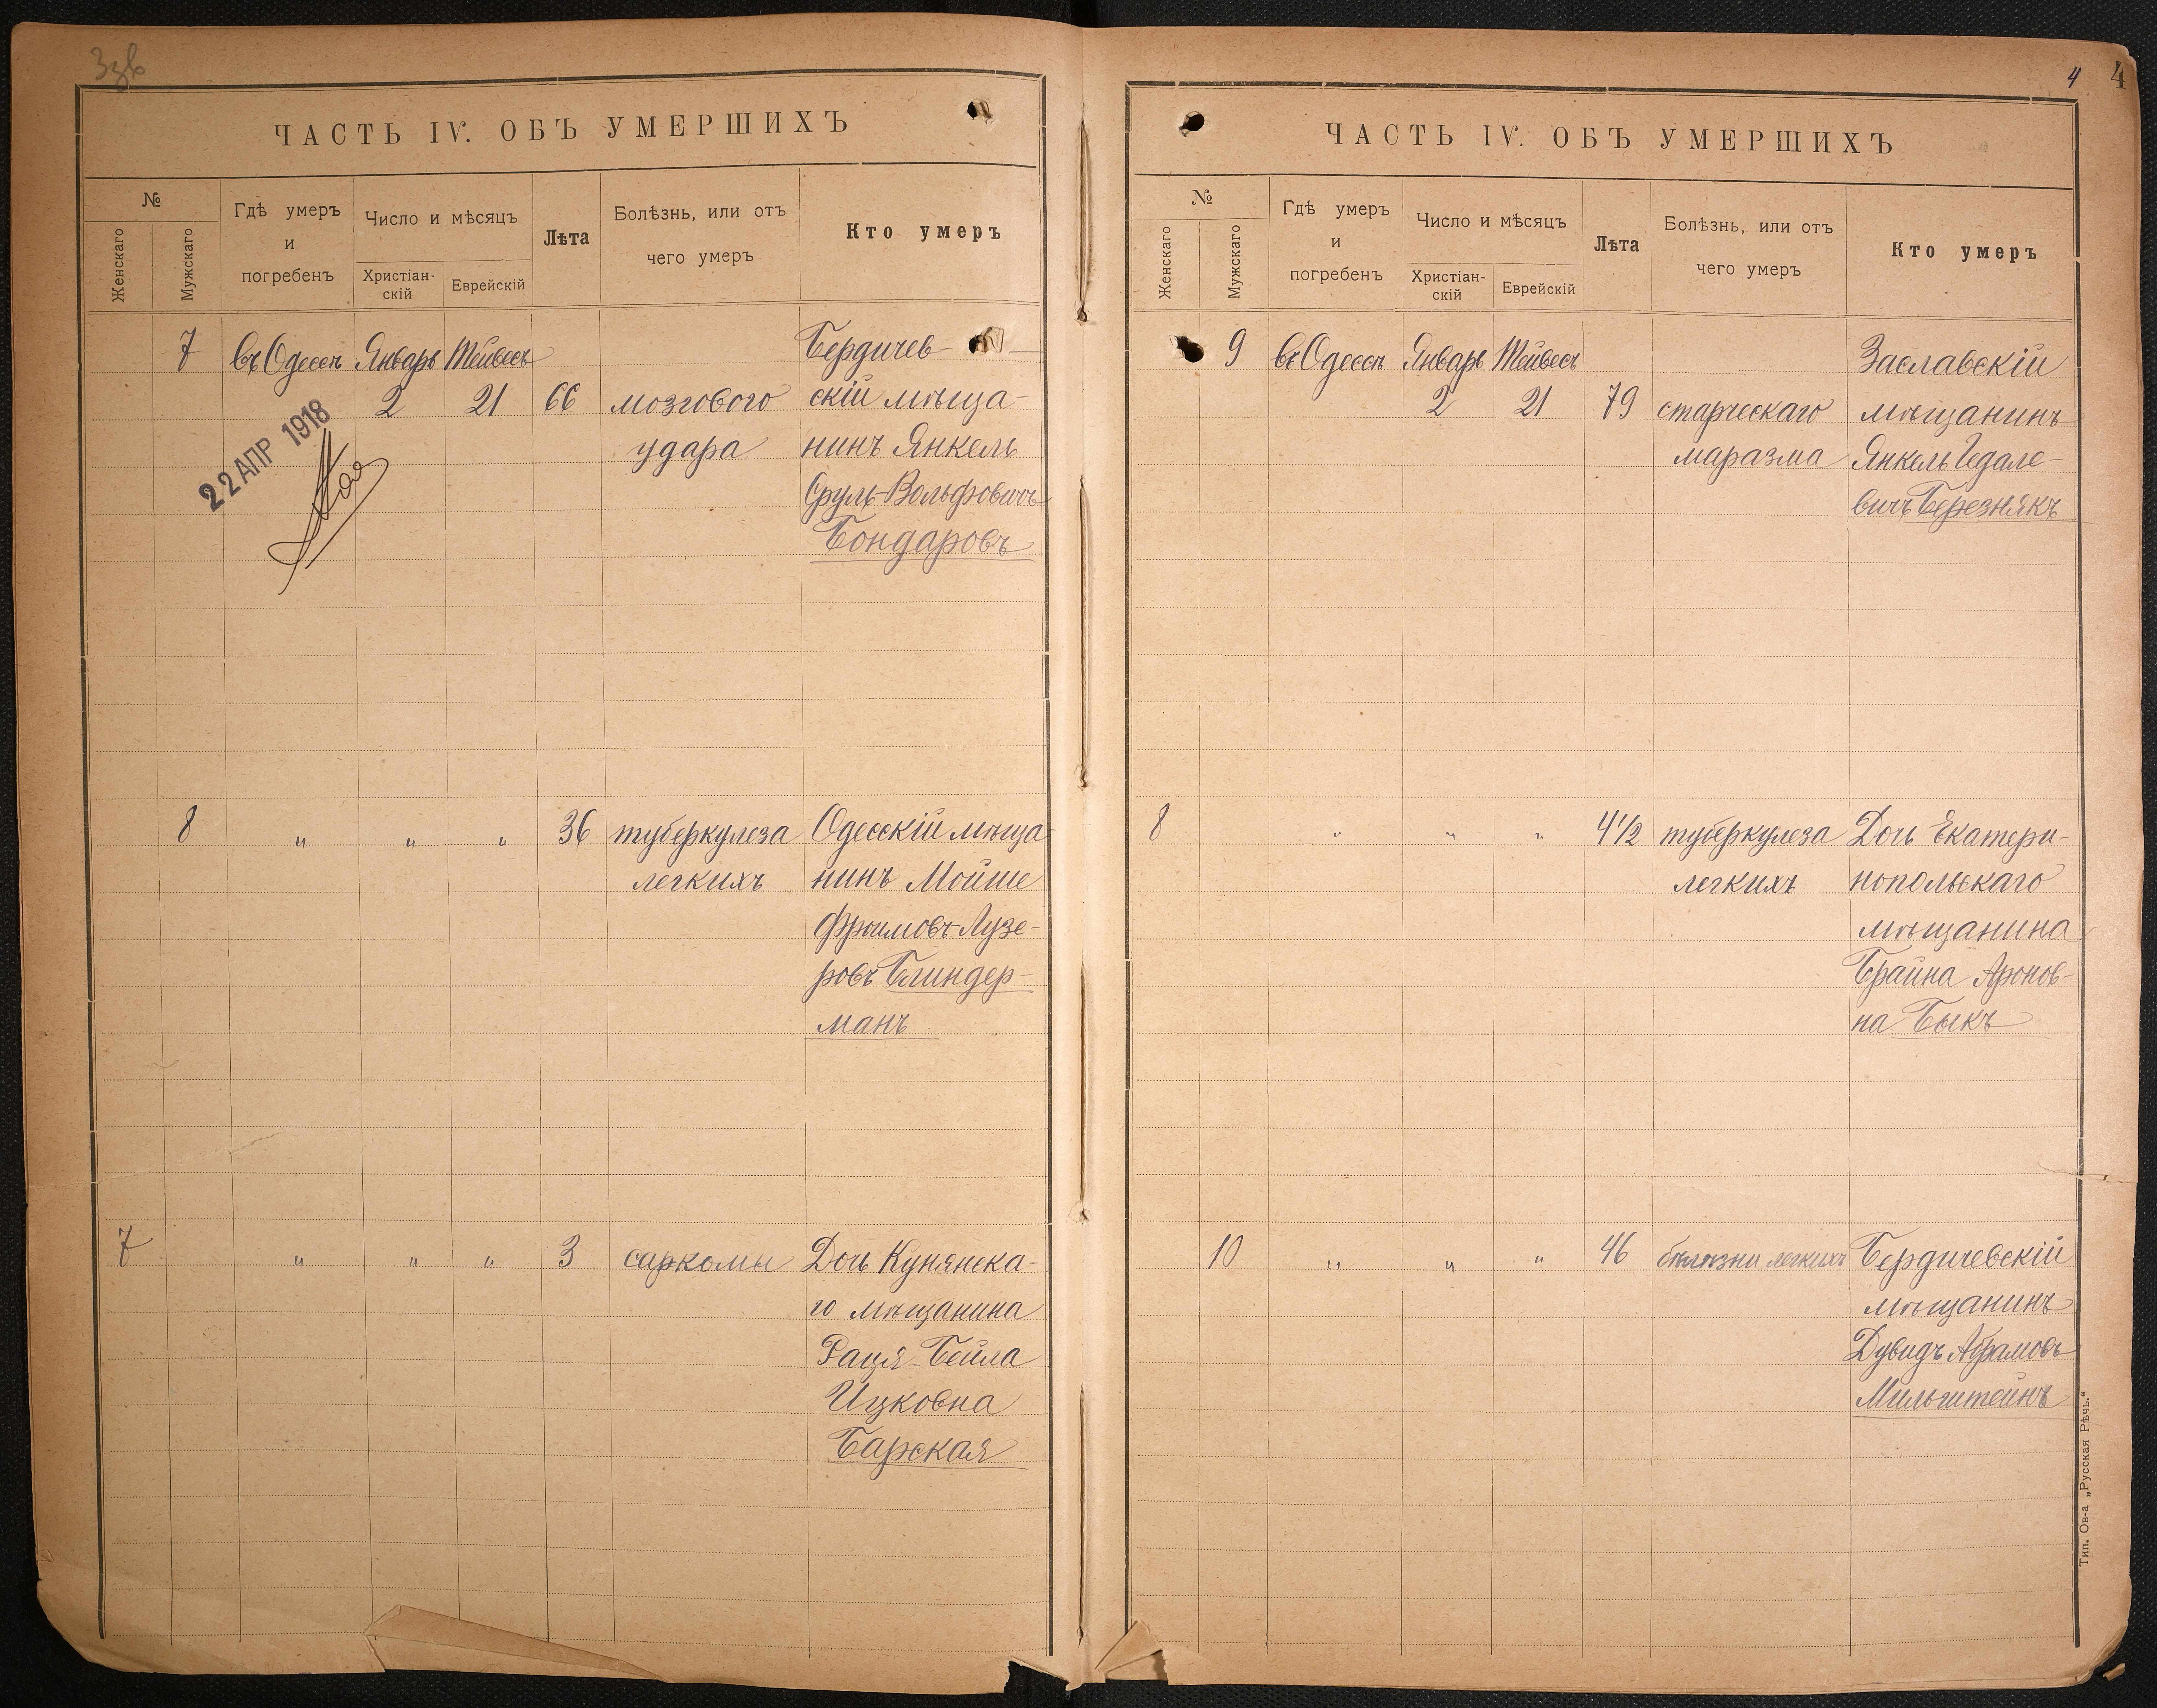 Ззв
ЧАСТЬ IV. ОБЪ УМЕРШИХЪ
№
Женскаго
Мужскаго
Гдѣ умеръ
и
погребенъ
Число и мѣсяцъ
Христіан-
скій
Еврейскій
Лѣта
Болѣзнь, или отъ
чего умеръ
Кто умеръ
7 въ Одессѣ Январь Тейвесъ Бердичев-
2 21 66 мозгового скій мѣща-
удара нинъ Янкель
Сруль-Вольфовичъ
Бондаровъ
22 АПР 1918
8 " " " 36 туберкулеза Одесскій мѣща
легкихъ нинъ Мойше
Фроимовъ-Лузе-
ровъ Блиндер-
манъ
7 " " " 3 саркомы Дочь Купянска-
го мѣщанина
Рация-Бейла
Ицковна
Барская
4 4
ЧАСТЬ IV. ОБЪ УМЕРШИХЪ
№
Женскаго
Мужскаго
Гдѣ умеръ
и
погребенъ
Число и мѣсяцъ
Христіан-
скій
Еврейскій
Лѣта
Болѣзнь, или отъ
чего умеръ
Кто умеръ
9 въ Одессѣ Январь Тейвесъ Заславскій
2 21 79 старческаго мѣщанинъ
маразма Янкель Гедале-
вичъ Березнякъ
8 " " " 4 1/2 туберкулеза Дочь Екатери-
легкихъ нопольскаго
мѣщанина
Брайна Аронов-
на Быкъ
10 " " " 46 болѣзни легкихъ Бердичевскій
мѣщанинъ
Дувидъ Абрамовъ
Мильштейнъ
Тип. Ов-а „Русская Рѣчь."